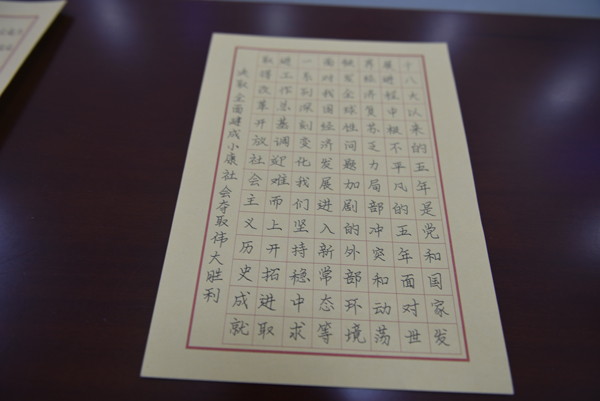 十八大以来的五年是党和国家发
展进程中极不平凡的五年面对世
界经济复苏乏力局部冲突和动荡
频发全球性问题加剧的外部环境
面对我国经济发展进入新常态等
一系列深刻变化我们坚持稳中求
进工作总基调迎难而上开拓进取
取得改革开放社会主义历史成就
决取全面建成小康社会夺取伟大胜利